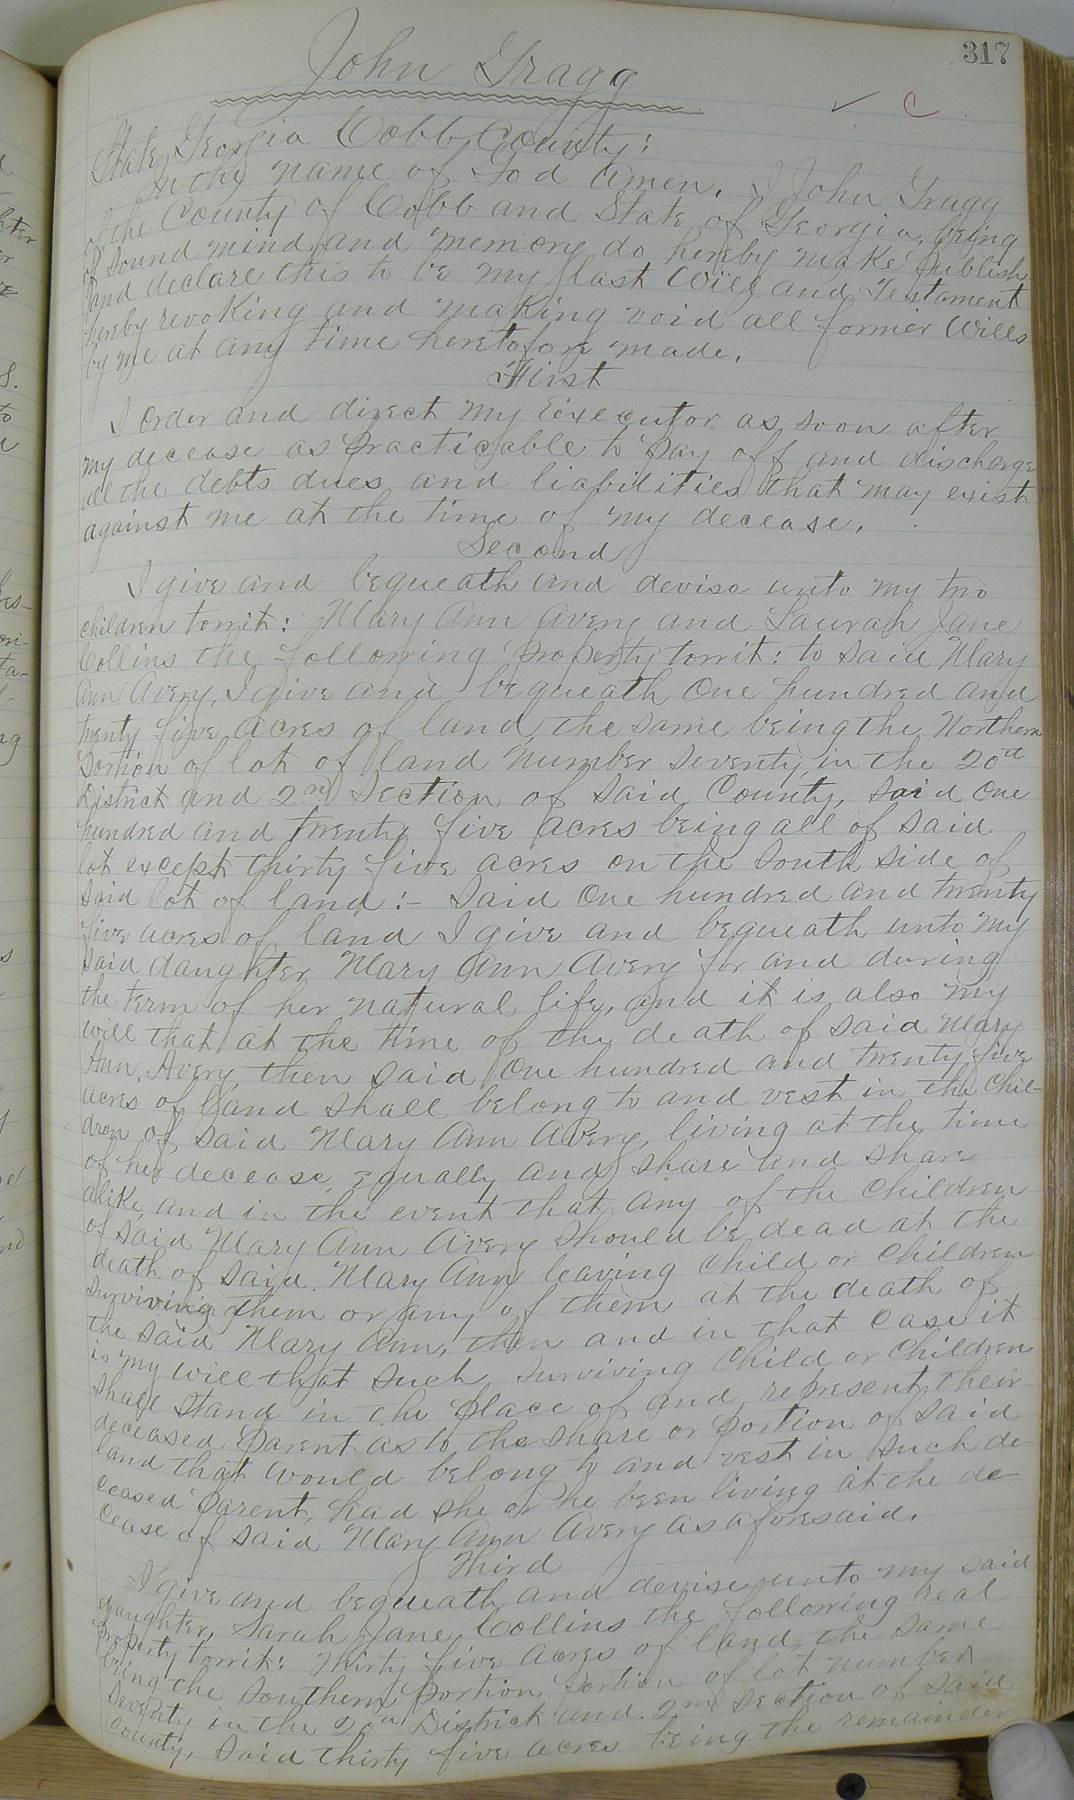 317
John Gragg
C
State Georgia Cobb County:
In the name of God Amen. I John Gragg
of the County of Cobb and State of Georgia, being
of sound mind and memory do hereby make publish
and declare this to be my last Will and Testament
hereby revoking and making void all former Wills
by me at any time heretofore made.
First
I order and direct my Executor as soon after
my decease as practicable to pay off and discharge
all the debts dues and liabilities that may exist
against me at the time of my decease.
Second
I give and bequeath and devise unto my two
children towit: Mary Ann Avery and Saurah Jane
Collins the following property towit: to said Mary
Ann Avery, I give and bequeath One hundred and
twenty five acres of land, the same being the Northern
Portion of lot of land number seventy, in the 20th
District and 2nd Section of said County, said One
hundred and twenty five acres being all of said
lot except thirty five acres on the South side of
said lot of land:- Said One hundred and twenty
five acres of land I give and bequeath unto my
said daughter Mary Ann Avery for and during
the term of her natural life, and it is also my
will that at the time of the death of said Mary
Ann Avery, then said One hundred and twenty five
acres of land shall belong to and vest in the chil-
dren of said Mary Ann Avery, living at the time
of her decease, Equally and share and share
alike, and in the event that any of the children
of said Mary Ann Avery should be dead at the
death of said Mary Ann leaving child or children
surviving them or any of them at the death of
the said Mary Ann, then and in that case it
is my will that such surviving child or children
shall stand in the place of and represent their
deceased parent as to the share or portion of said
land that would belong to and vest in such de-
ceased parent, had she or he been living at the de-
cease of said Mary Ann Avery as aforesaid.
Third
I give and bequeath and devise unto my said
daughter, Sarah Jane Collins the following real
property towit: Thirty five acres of land, the same
being the Southern Portion Portion of lot number
Seventy in the 20th District and 2nd Section of said
County, said thirty five acres being the remainder